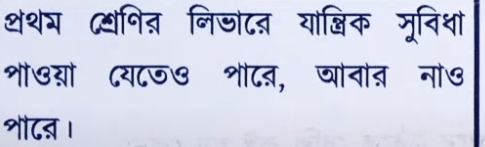 প্রথম শ্রেণির লিভারে যান্ত্রিক সুবিধা
পাওয়া যেতেও পারে, আবার নাও
পারে।